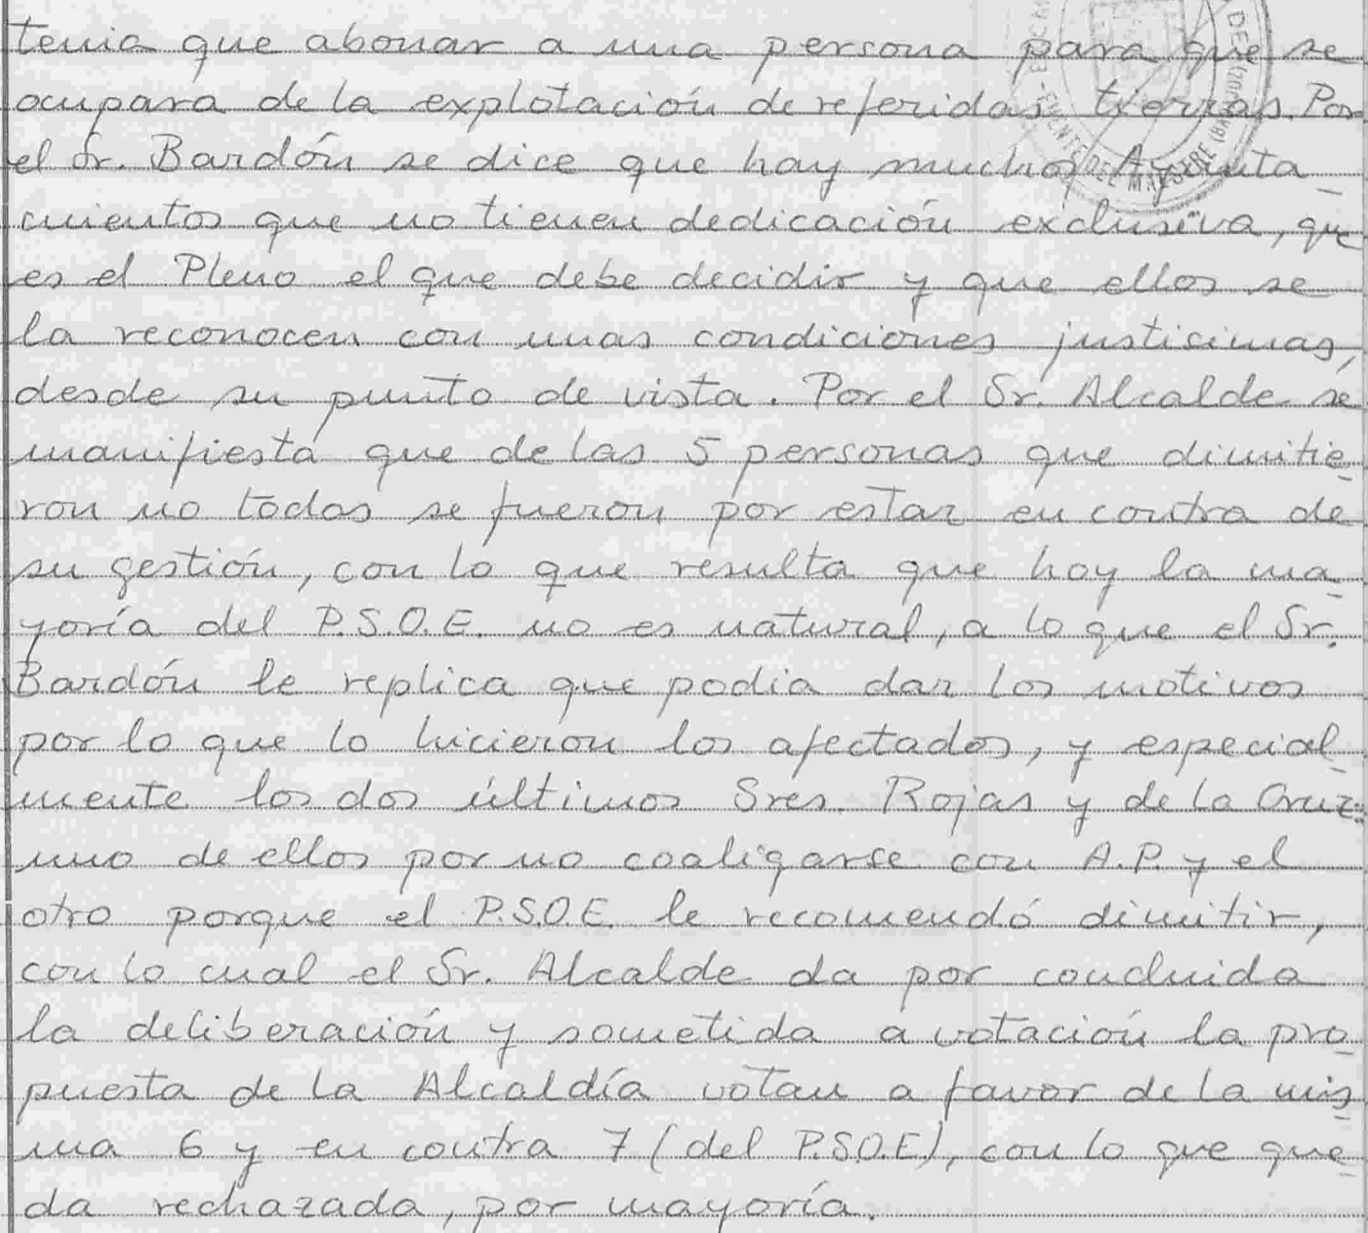 tenia que abonar a una persona para que se
ocupara de la explotación de referidas tierras. Por
el Sr. Bardón se dice que hay muchos Ayunta_
mientos que no tienen dedicación exclusiva, que
es el Pleno el que debe decidir y que ellos se
la reconocen con unas condiciones justisimas,
desde su punto de vista. Por el Sr. Alcalde se
manifiesta que de las 5 personas que dimitie_
ron no todas se fueron por estar en contra de
su gestión, con lo que resulta que hoy la ma_
yoría del P.S.O.E. no es natural, a lo que el Sr.
Bardón le replica que podia dar los motivos
por lo que lo hicieron los afectados, y especial_
mente los dos últimos Sres. Rojas y de la Cruz:
uno de ellos por no coaligarse con A.P. y el
otro porque el P.S.O.E. le recomendó dimitir,
con lo cual el Sr. Alcalde da por concluida
la deliberación y sometida a votación la pro_
puesta de la Alcaldía votan a favor de la mis_
ma 6 y en contra 7 (del P.S.O.E), con lo que que_
da rechazada, por mayoría.
FUENTE DEL MAESTRE (BADAJOZ)